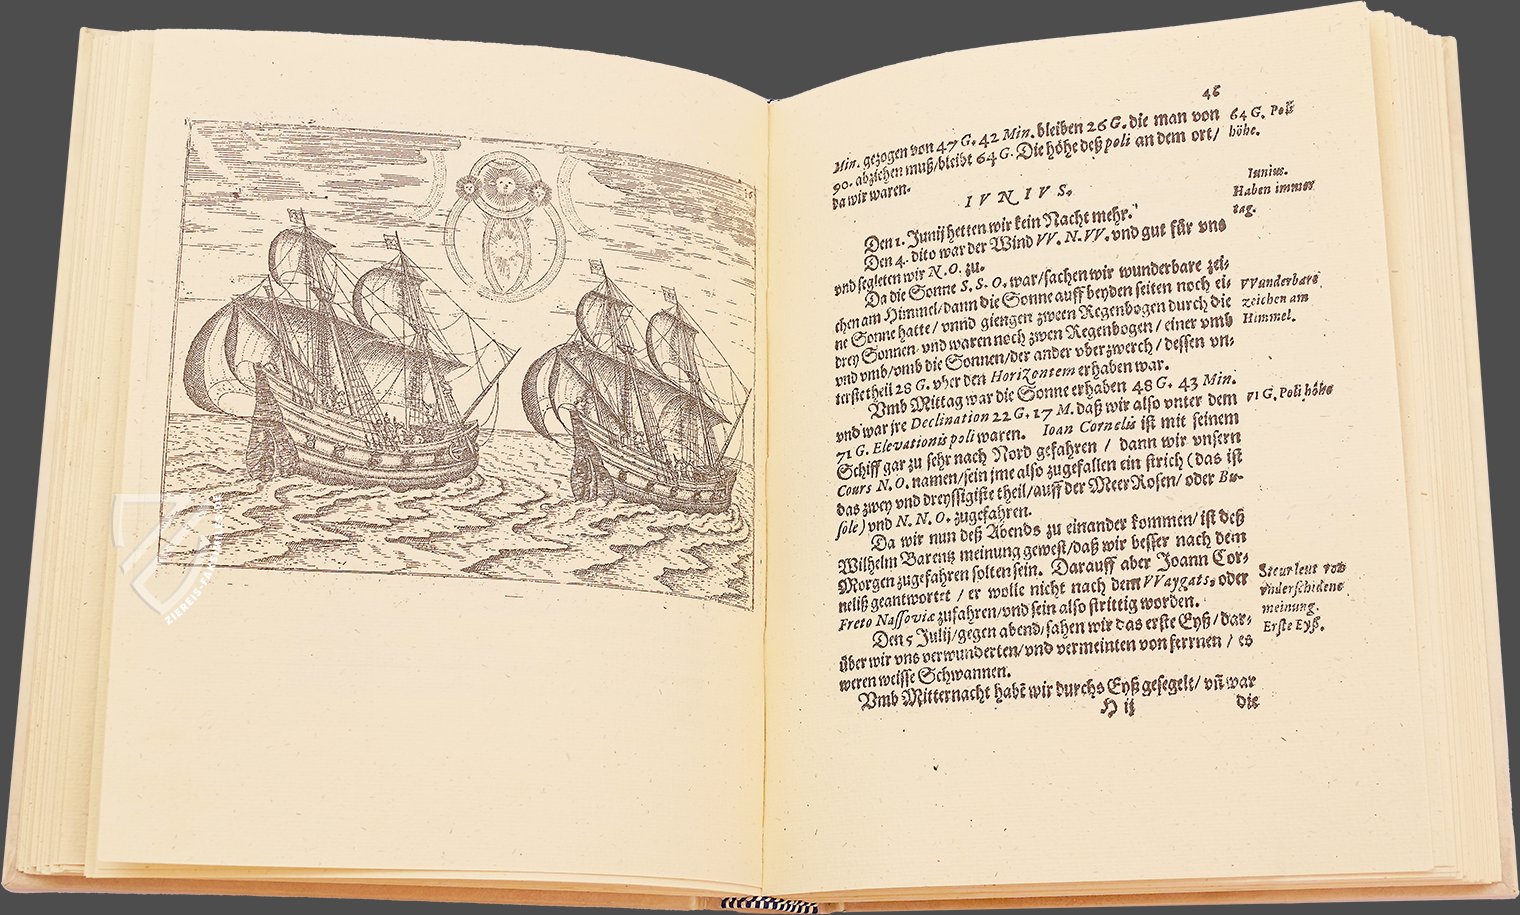 16
ZIEREIS-FAKSIMILES
46
Min. gezogen von 47 G. 42 Min. bleiben 26 G. die man von
90. abziehen muß/bleibt 64 G. Die höhe deß poli an dem ort/
da wir waren.
64 G. Poli
höhe.
IVNIVS.
Iunius.
Haben immer
tag.
Den 1. Junij hetten wir kein Nacht mehr.
Den 4. dito war der Wind VV. N. VV. vnd gut für vns
vnd segleten wir N. O. zu.
Da die Sonne S. S. O. war/sachen wir wunderbare zei-
chen am Himmel/dann die Sonne auff beyden seiten noch ei-
ne Sonne hatte/vnnd giengen zween Regenbogen durch die
drey Sonnen, vnd waren noch zwen Regenbogen/einer vmb
vnd vmb/vmb die Sonnen/der ander vberzwerch/dessen vn-
terste theil 28 G. vber den Horizontem erhaben war.
VVunderbare
zeichen am
Himmel.
Vmb Mittag war die Sonne erhaben 48 G. 43 Min.
vnd war jre Declination 22 G. 17 M. daß wir also vnter dem
71 G. Elevationis poli waren. Ioan Cornelis ist mit seinem
Schiff gar zu sehr nach Nord gefahren / dann wir vnsern
Cours N. O. namen/sein jme also zugefallen ein strich (das ist
das zwey vnd dreyssigiste theil/auff der Meer Rosen/oder Bu-
sole) vnd N. N. O. zugefahren.
71 G. Poli höhe
Da wir nun deß Abends zu einander kommen/ist deß
Wilhelm Barentz meinung gewest/daß wir besser nach dem
Morgen zugefahren solten sein. Darauff aber Joann Cor-
neliß geantwortet / er wolle nicht nach dem VVaygats, oder
Freto Nassoviæ zufahren/vnd sein also strittig worden.
Steurleut von
vnderschidene
meinung.
Den 5 Julij/gegen abend/sahen wir das erste Eyß/dar-
über wir vns verwunderten/vnd vermeinten von ferrnen / es
weren weisse Schwannen.
Erste Eyß.
Vmb Mitternacht habẽ wir durchs Eyß gesegelt/ vñ war
H ij
die